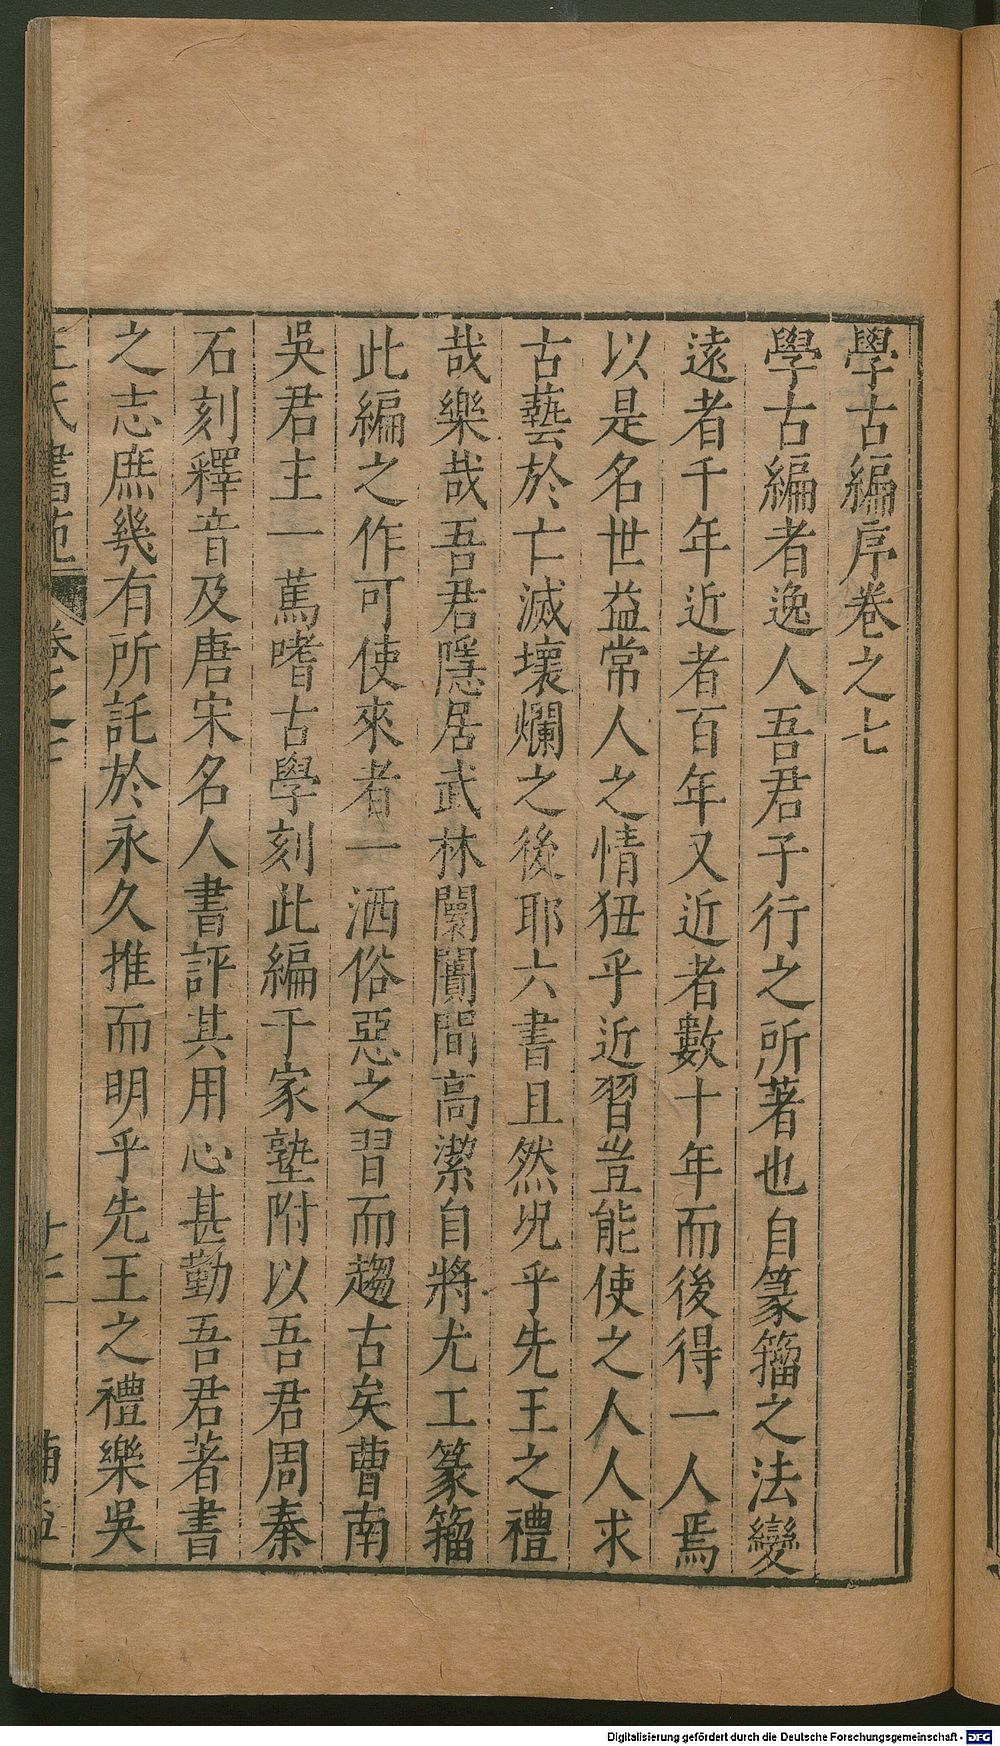 學古編序卷之七
學古編者逸人吾君子行之所著也自篆籀之法變
遠者千年近者百年又近者數十年而後得一人焉
以是名世益常人之情狃乎近習豈能使之人人求
古藝於亡滅壞爛之後耶六書且然況乎先王之禮
哉樂哉吾君隱居武林闤闠間高潔自將尤工篆籀
此編之作可使來者一洒俗惡之習而趨古矣曹南
吳君主一篤嗜古學刻此編于家塾附以吾君周秦
石刻釋音及唐宋名人書評其用心甚勤吾君著書
之志庶幾有所託於永久推而明乎先王之禮樂吳
王氏書苑 卷之七
Digitalisierung gefördert durch die Deutsche Forschungsgemeinschaft - DFG